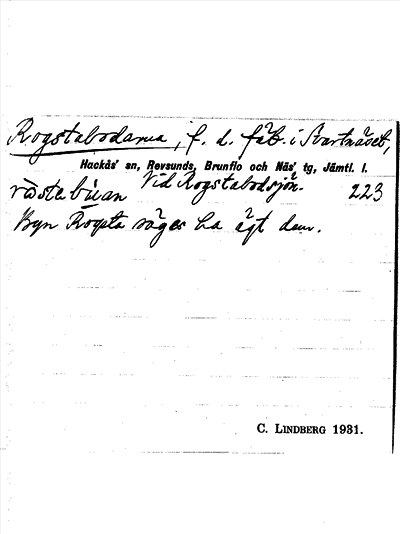 Rogstabodarna, f. d. fäb. i Svartnäset,
Hackås' sn, Revsunds, Brunflo och Näs' tg, Jämtl. l.
Vid Rogstabodsjön. 223
råstabúan
Byn Rogsta säges ha ägt dem.
C. LINDBERG 1931.